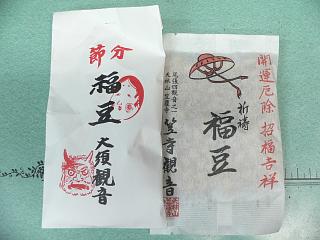 節分
福豆
大須観音
開運厄除 招福吉祥
祈祷
福豆
尾張四観音之一
天林山笠覆寺
笠寺観音